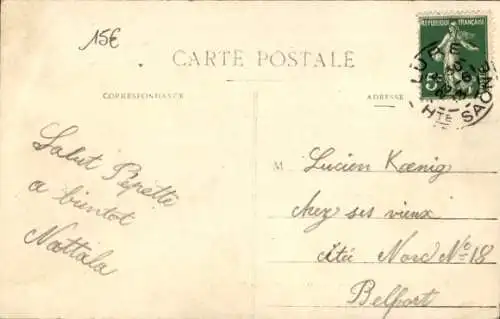 15€
RÉPUBLIQUE FRANÇAISE
CARTE POSTALE
LURE
Hte SAÔNE
CORRESPONDANCE
ADRESSE
Salut Pépette
a bientot
Nattala
M Lucien Kœnig
chez ses vieux
Cité Nord No 18
Belfort